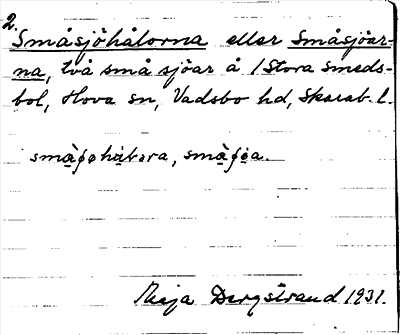 2.
Småsjöhålorna eller Småsjöar-
na, två små sjöar å 1 Stora Smeds-
bol, Hova sn, Vadsbo hd, Skarab. l.
Meja Bergstrand 1931.